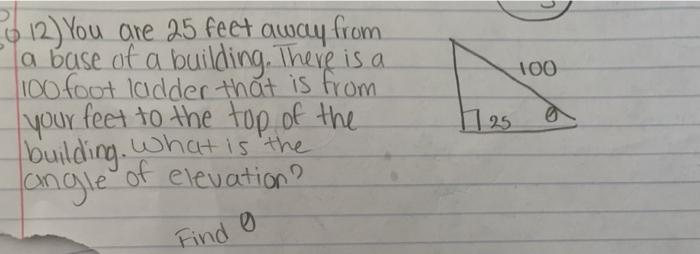 12) You are 25 feet away from
a base of a building. There is a
100 foot ladder that is from
your feet to the top of the
building. What is the
angle of elevation?
Find θ
100
25 θ